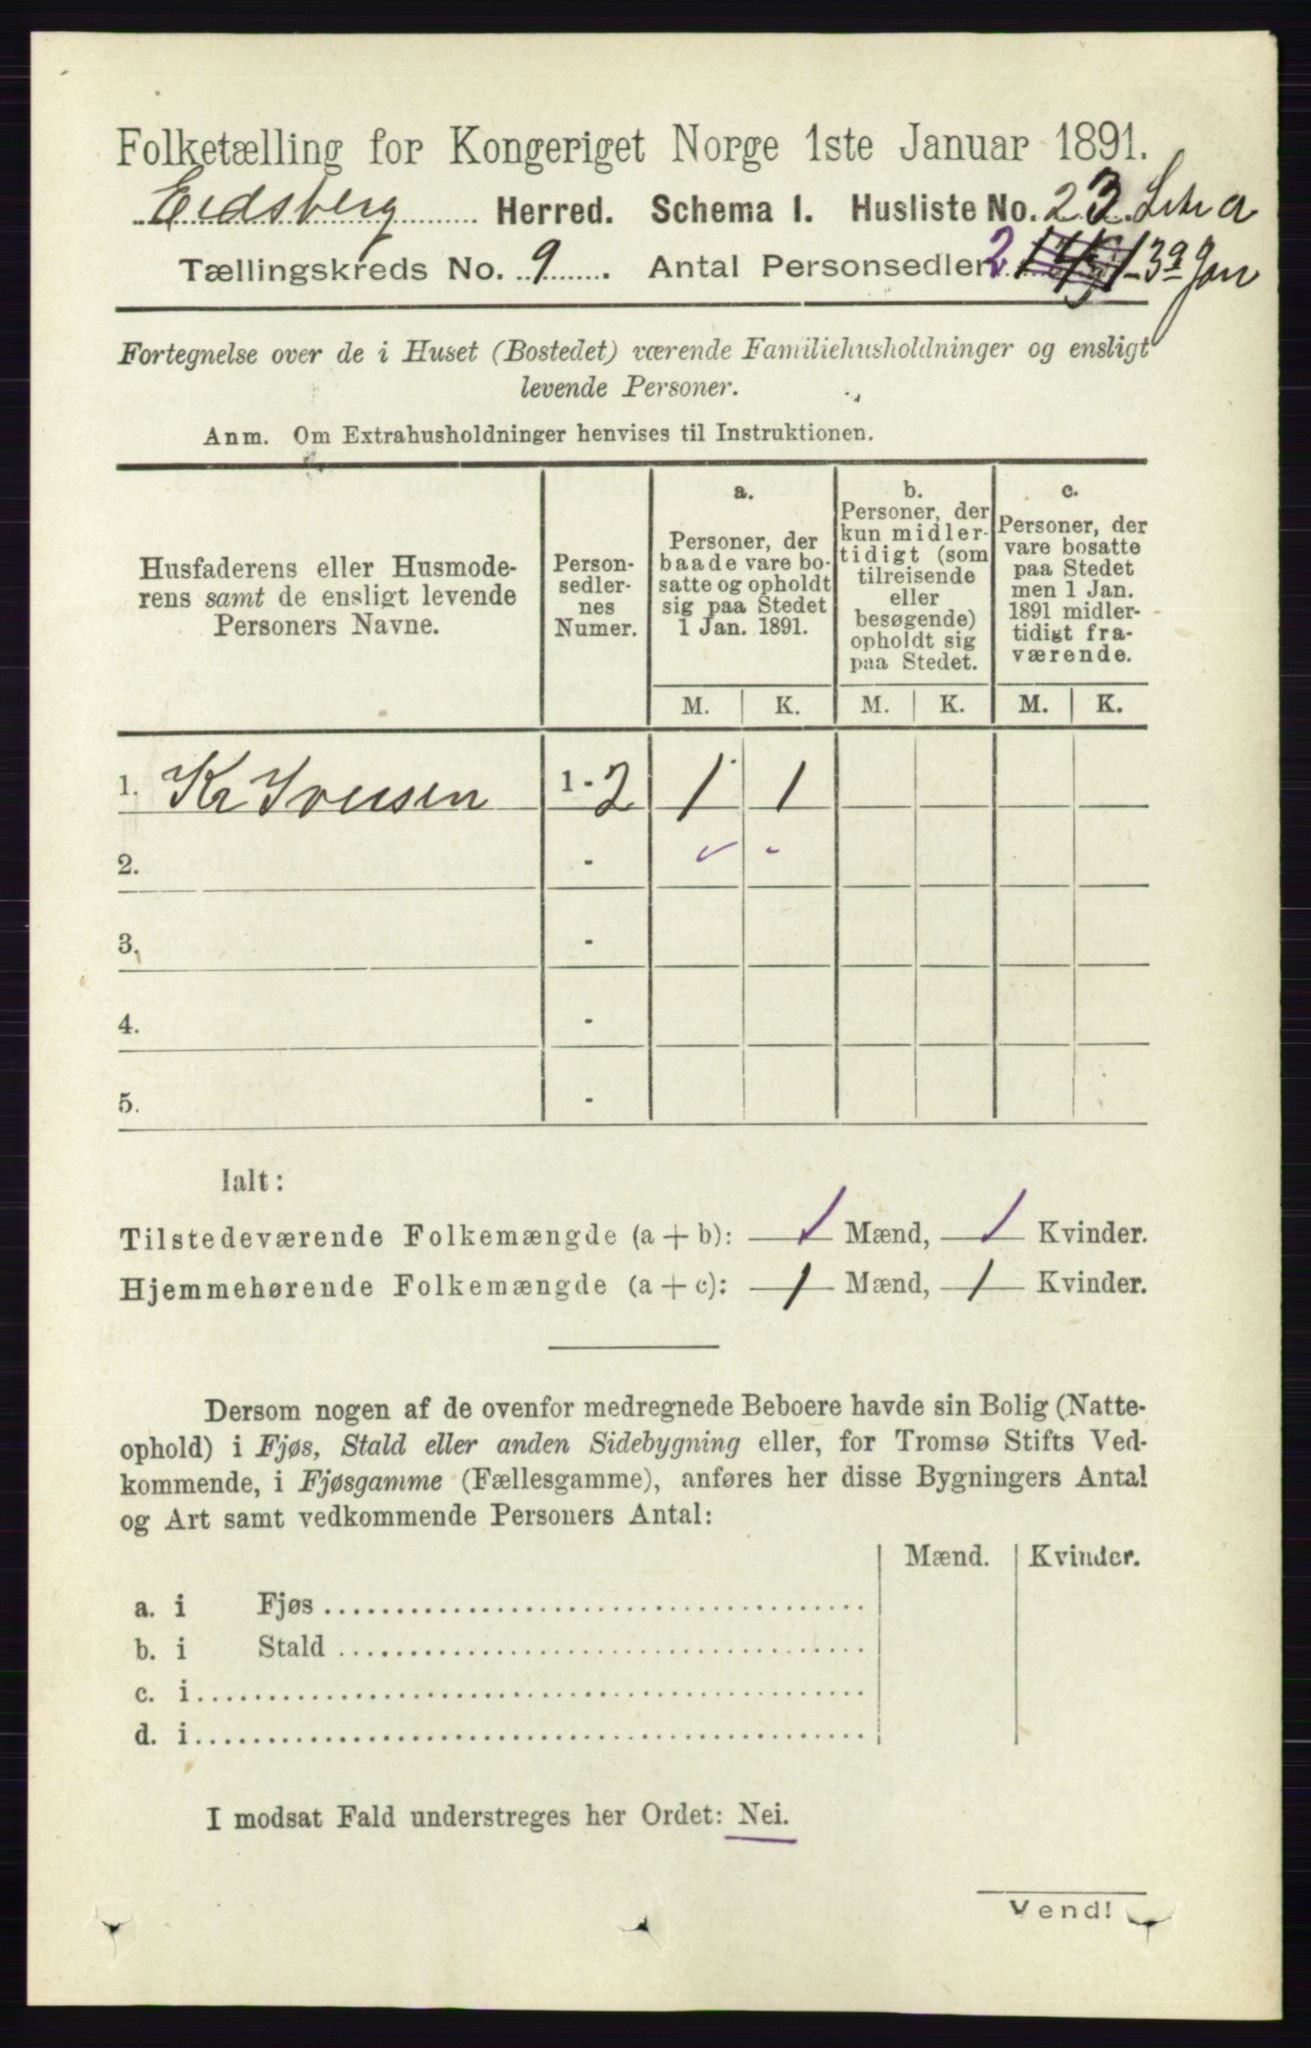 Folketælling for Kongeriget Norge 1ste Januar 1891.
Eidsberg Herred. Schema I. Husliste No. 23 Litr a
Tællingskreds No. 9. Antal Personsedler 2
Fortegnelse over de i Huset (Bostedet) værende Familiehusholdninger og ensligt
levende Personer.
Anm. Om Extrahusholdninger henvises til Instruktionen.
Husfaderens eller Husmode-
rens samt de ensligt levende
Personers Navne.
Person-
sedler-
nes
Numer.
a.
Personer, der
baade vare bo-
satte og opholdt
sig paa Stedet
1 Jan. 1891.
b.
Personer, der
kun midler-
tidigt (som
tilreisende
eller
besøgende)
opholdt sig
paa Stedet.
c.
Personer, der
vare bosatte
paa Stedet
men 1 Jan.
1891 midler-
tidigt fra-
værende.
M. K. M. K. M. K.
1. Kr Iversen 1 - 2 1 1
2. -
3. -
4. -
5. -
Ialt:
Tilstedeværende Folkemængde (a + b): 1 Mænd, 1 Kvinder.
Hjemmehørende Folkemængde (a + c): 1 Mænd, 1 Kvinder.
Dersom nogen af de ovenfor medregnede Beboere havde sin Bolig (Natte-
ophold) i Fjøs, Stald eller anden Sidebygning eller, for Tromsø Stifts Ved-
kommende, i Fjøsgamme (Fællesgamme), anføres her disse Bygningers Antal
og Art samt vedkommende Personers Antal:
Mænd. Kvinder.
a. i Fjøs
b. i Stald
c. i
d. i
I modsat Fald understreges her Ordet: Nei.
Vend!